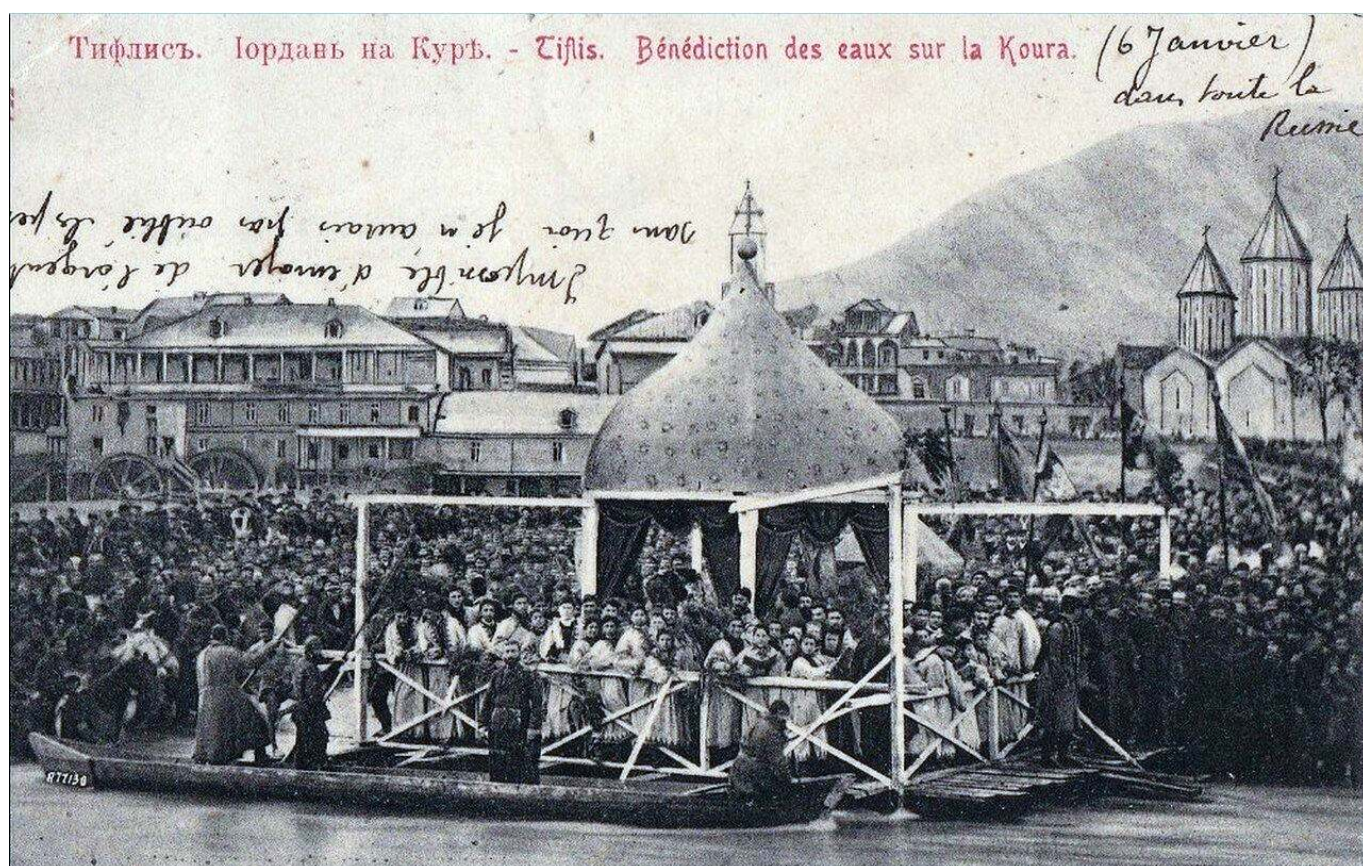 Тифлисъ. Іордань на Курѣ. - Tiflis. Bénédiction des eaux sur la Koura.
(6 Janvier)
dans toute la
Russie
Impossible d'envoyer de l'argent
sans quoi je n'aurais pas oublié les